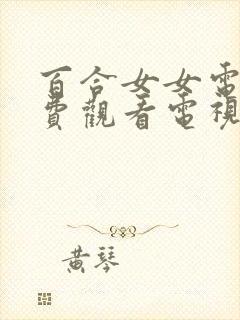 百合女女電
費觀看電視
黃琴